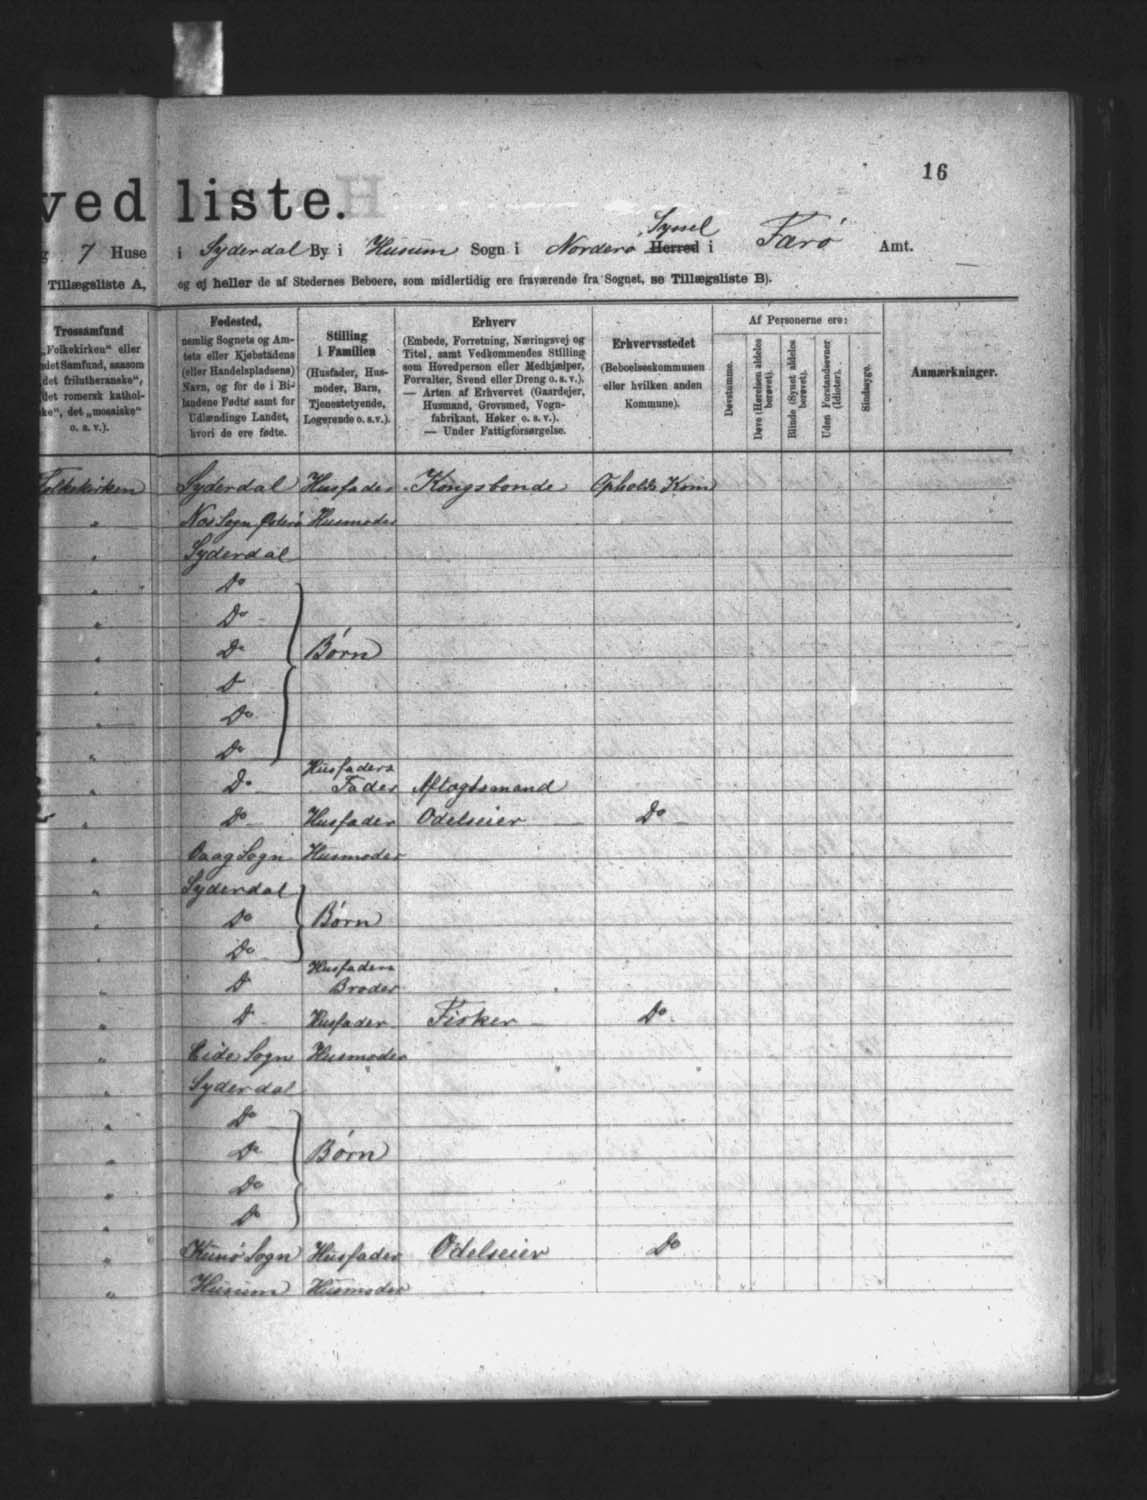 16
ved liste.
g 7 Huse i Syderdal By i Husum Sogn i Norderø Syssel Herred i Færø Amt.
Tillægsliste A, og ej heller de af Stedernes Beboere, som midlertidig ere fraværende fra Sognet, se Tillægsliste B).
Trossamfund
„Folkekirken“ eller
ndet Samfund, saasom
det frilutheranske“,
det romersk kathol-
ke“, det „mosaiske“
o. s. v.).
Fødested,
nemlig Sognets og Am-
tets eller Kjøbstadens
(eller Handelspladsens)
Navn, og for de i Bi-
landene Fødte samt for
Udlændinge Landet,
hvori de ere fødte.
Stilling
i Familien
(Husfader, Hus-
moder, Barn,
Tjenestetyende,
Logerende o. s. v.).
Erhverv
(Embede, Forretning, Næringsvej og
Titel, samt Vedkommendes Stilling
som Hovedperson eller Medhjælper,
Forvalter, Svend eller Dreng o. s. v.).
— Arten af Erhvervet (Gaardejer,
Husmand, Grovsmed, Vogn-
fabrikant, Høker o. s. v.).
— Under Fattigforsørgelse.
Erhvervsstedet
(Beboelseskommunen
eller hvilken anden
Kommune).
Af Personerne ere:
Døvstumme.
Døve (Hørelsen aldeles
berøvet).
Blinde (Synet aldeles
berøvet).
Uden Forstandsevner
(Idioter).
Sindssyge.
Anmærkninger.
Folkekirken Syderdal Husfader Kongsbonde Opholds Kom
" Nes Sogn Østerø Husmoder
" Syderdal
" Do
" Do
" Do Børn
" D
" Do
" Do
Husfaders
" Do Fader Aftægtsmand
" Do Husfader Odelseier Do
" Vaag Sogn Husmoder
" Syderdal
" Do Børn
" Do
Husfaders
" D Broder
" D Husfader Fisker Do
" Eide Sogn Husmoder
" Syderdal
" Do
" Do Børn
" Do
" Do
" Kunø Sogn Husfader Odelseier Do
" Husum Husmoder